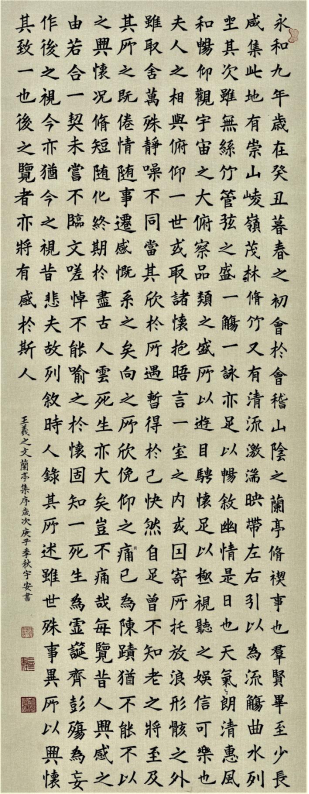 永和九年歲在癸丑暮春之初會於會稽山陰之蘭亭脩禊事也羣賢畢至少長
咸集此地有崇山峻嶺茂林脩竹又有清流激湍映帶左右引以為流觴曲水列
坐其次雖無絲竹管弦之盛一觴一詠亦足以暢敘幽情是日也天氣朗清惠風
和暢仰觀宇宙之大俯察品類之盛所以遊目騁懷足以極視聽之娛信可樂也
夫人之相與俯仰一世或取諸懷抱晤言一室之內或因寄所托放浪形骸之外
雖取舍萬殊靜噪不同當其欣於所遇暫得於己快然自足曾不知老之將至及
其所之既倦情随事遷感慨系之矣向之所欣俛仰之痛已為陳蹟猶不能不以
之興懷况脩短随化終期於盡古人雲死生亦大矣豈不痛哉每覽昔人興感之
由若合一契未嘗不臨文嗟悼不能喻之於懷固知一死生為虛誕齊彭殤為妄
作後之視今亦猶今之視昔悲夫故列敘時人録其所述雖世殊事異所以興懷
其致一也後之覽者亦將有感於斯人
王羲之文蘭亭集序歲次庚子季秋守安書